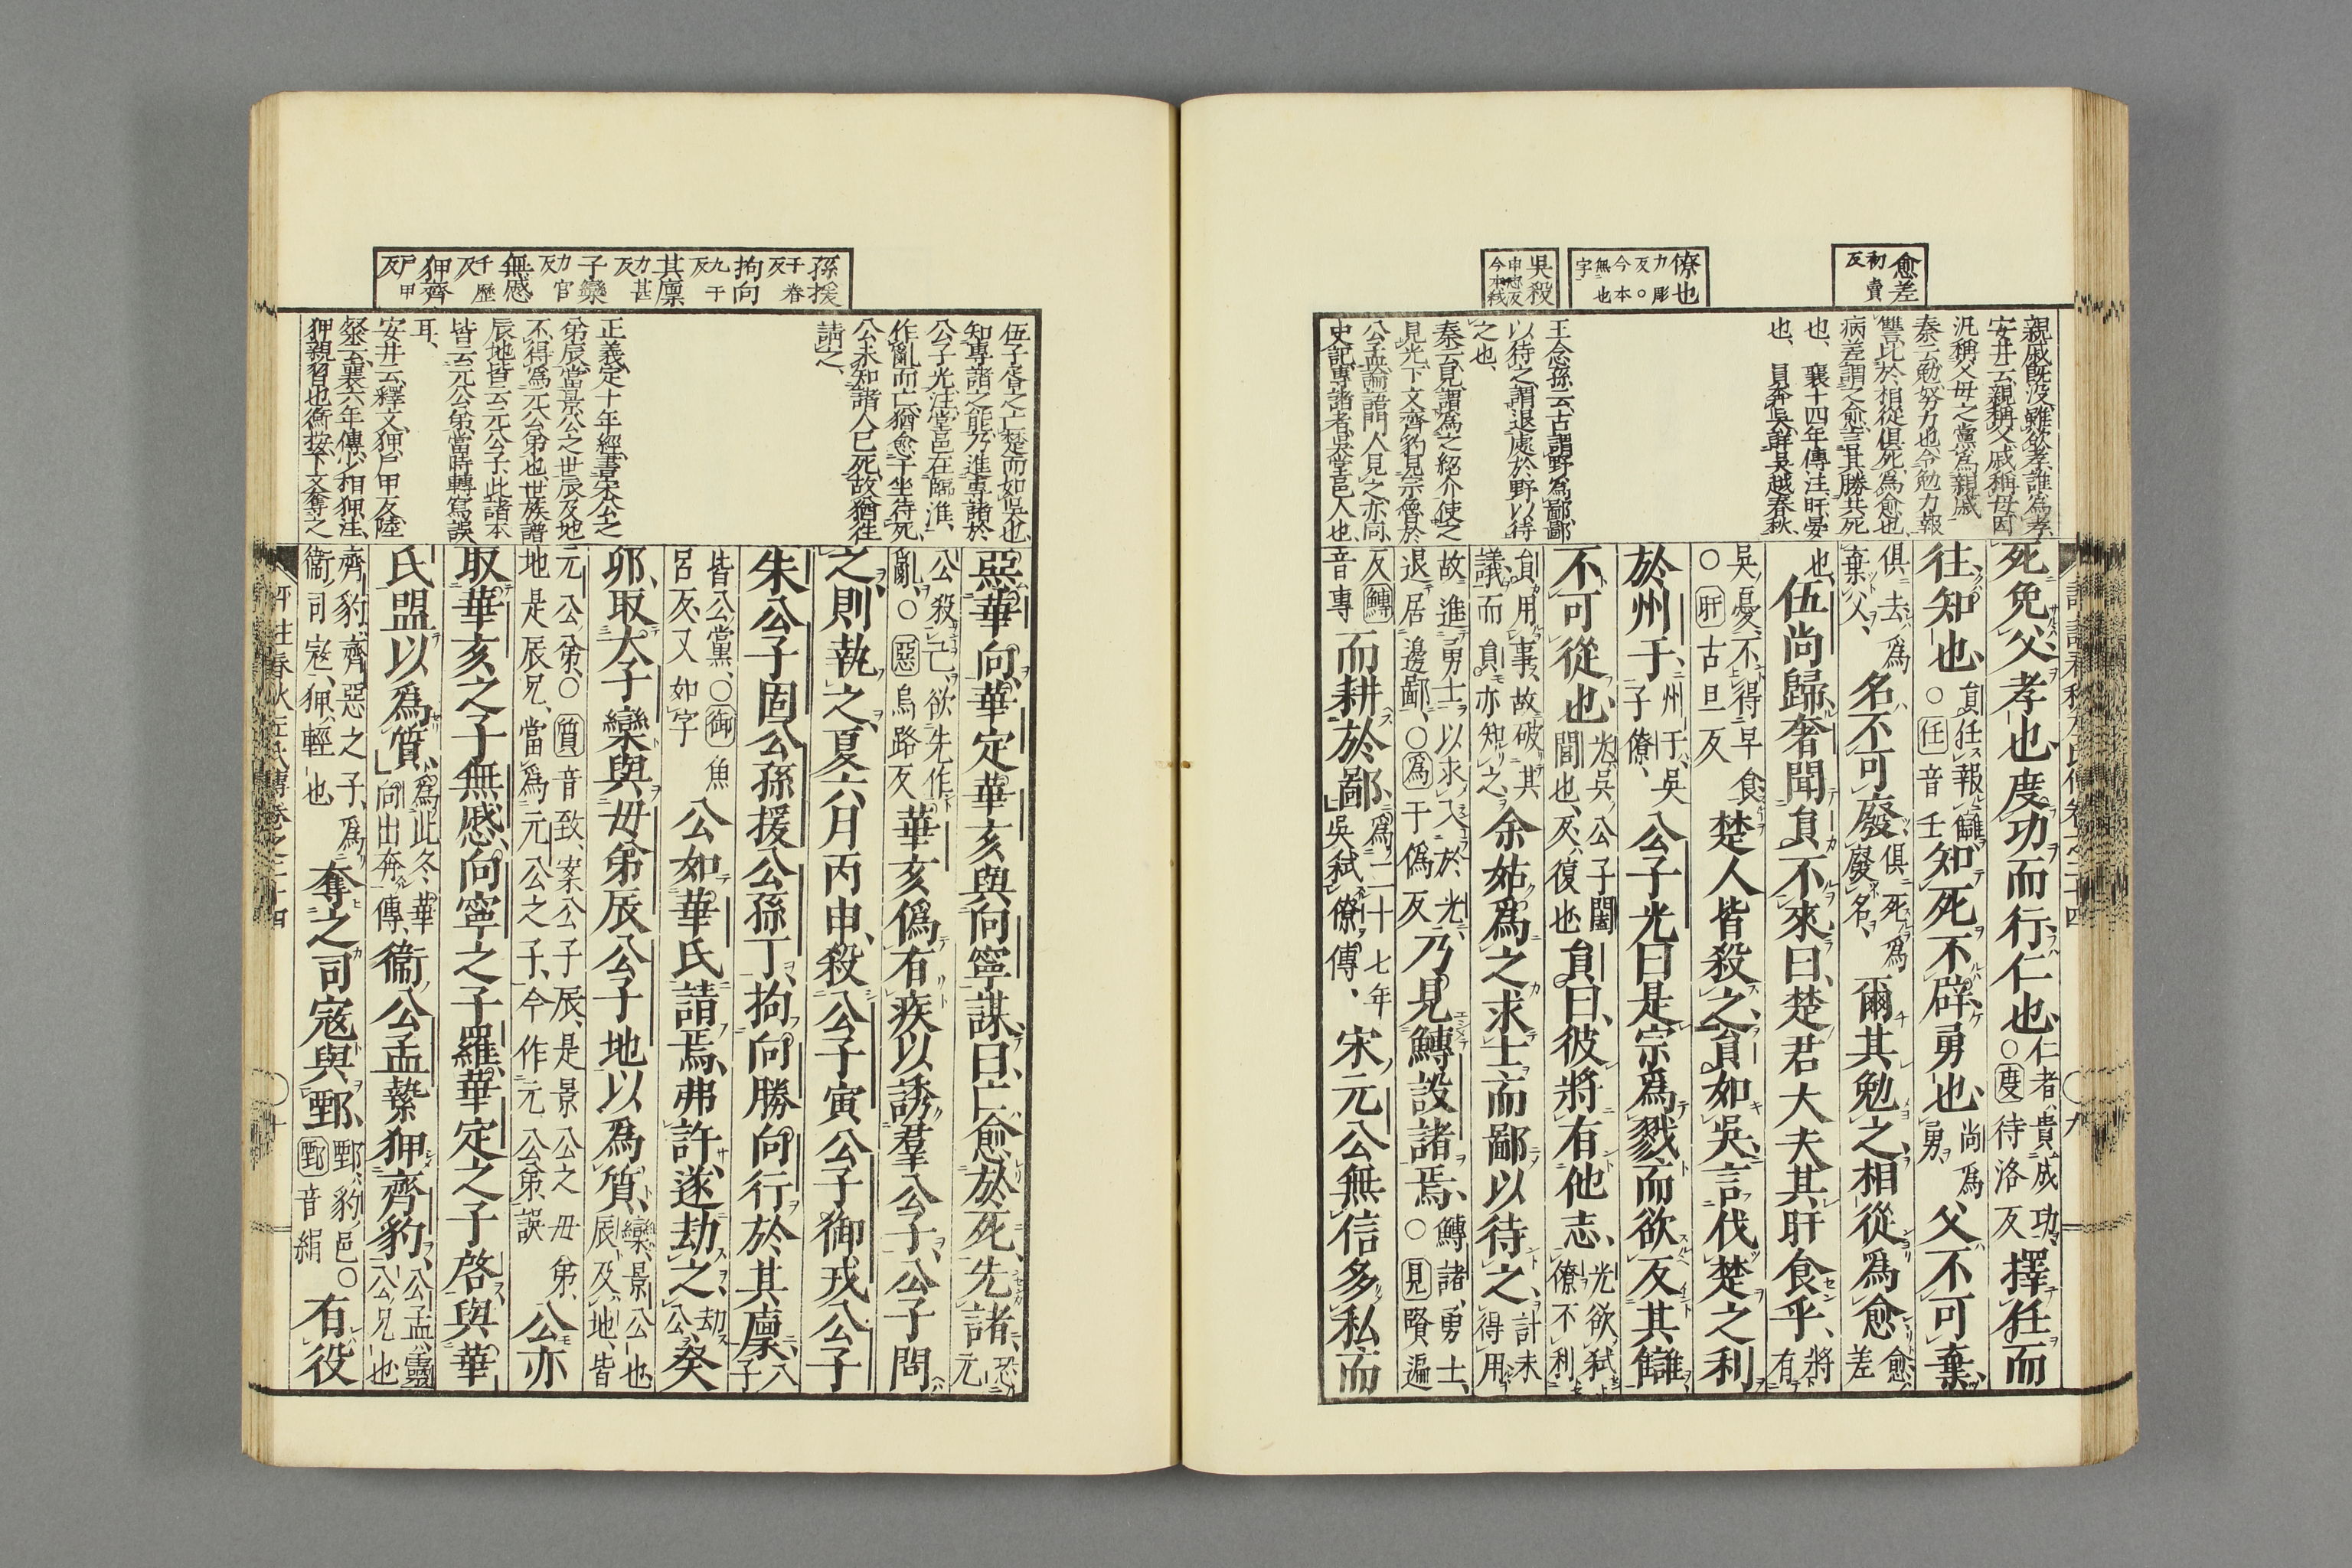 愈差
初賣
反
僚也
力彫
反○
今本
無也
字
吳殺
申志反
今本弑
親戚旣沒、雖欲孝、誰爲孝、
安井云、親稱父、戚稱母、因
汎稱父母之黨爲親戚、
秦云、勉努力也、令勉力報
讐、比於相從俱死爲愈也、
病差謂之愈、言其勝共死
也、襄十四年傳注、旰晏
也、員奔吳、詳吳越春秋、
王念孫云、古謂野爲鄙、鄙
以待之、謂退處於野以待
之也、
秦云、見謂爲之紹介使之
見光、下文齊豹見宗魯於
公孟、論語門人見之、亦同、
史記、專諸者、吳堂邑人也、
死免父、孝也、度功而行、仁也、仁者貴成功、○度待洛反 擇任而
往、知也、員任報讎、○任音壬 知死不辟、勇也、尚爲勇、父不可棄、
俱去爲棄父、名不可廢、俱死爲廢名、爾其勉之、相從爲愈、愈差
也、伍尚歸、奢聞員不來、曰、楚君大夫其旰食乎、將有
吳憂、不得早食、○旰古旦反 楚人皆殺之、員如吳、言伐楚之利
於州于、州于、吳子僚、公子光曰、是宗爲戮、而欲反其讎、
不可從也、光、吳公子闔閭也、反、復也、員曰、彼將有他志、光欲弑僚、不利
員用事、故破其議、而員亦知之、余姑爲之求士、而鄙以待之、計未得用、
故進勇士、以求入於光、退居邊鄙、○爲于僞反 乃見鱄設諸焉、鱄諸、勇士、○見賢遍
反鱄音專 而耕於鄙、爲二十七年吳弑僚傳、宋元公無信多私、而
九
孫援
于眷
反
拘向
九于
反
其廩
力甚
反
子欒
力官
反
無慼
千歷
反
狎齊
戶甲
反
伍子胥之亡楚而如吳也、
知專諸之能、乃進專諸於
公子光、注、堂邑在臨淮、
作亂而亡、猶愈于坐待死、
公未知諸人已死、故猶往
請之、
正義、定十年經、書宋公之
弟辰、當景公之世、辰及地
不得爲元公弟也、世族譜
辰地皆云元公子、此諸本
皆云元公弟、當時轉寫誤
耳、
安井云、釋文、狎、戶甲反、陸
粲云、襄六年傳、少相狎、注、
狎、親習也、衡按、下文奪之
惡華向、華定華亥與向寧謀曰、亡愈於死、先諸、恐元
公殺己、欲先作亂、○惡烏路反 華亥僞有疾、以誘羣公子、公子問
之、則執之、夏六月丙申、殺公子寅公子御戎公子
朱公子固公孫援公孫丁、拘向勝向行於其廩、八子
皆公黨、○御魚呂反、又如字 公如華氏請焉、弗許、遂劫之、劫公、癸
卯、取大子欒與母弟辰公子地以爲質、欒、景公也、辰及地、皆
元公弟、○質音致、案公子辰、是景公之母弟、地是辰兄、當爲元公之子、今作元公弟、誤 公亦
取華亥之子無慼、向寧之子羅、華定之子啓、與華
氏盟以爲質、爲此冬華向出奔傳、衞公孟縶狎齊豹、公孟、靈公兄也、
齊豹、齊惡之子、爲衞司寇、狎、輕也 奪之司寇與鄄、鄄、豹邑、○鄄音絹 有役